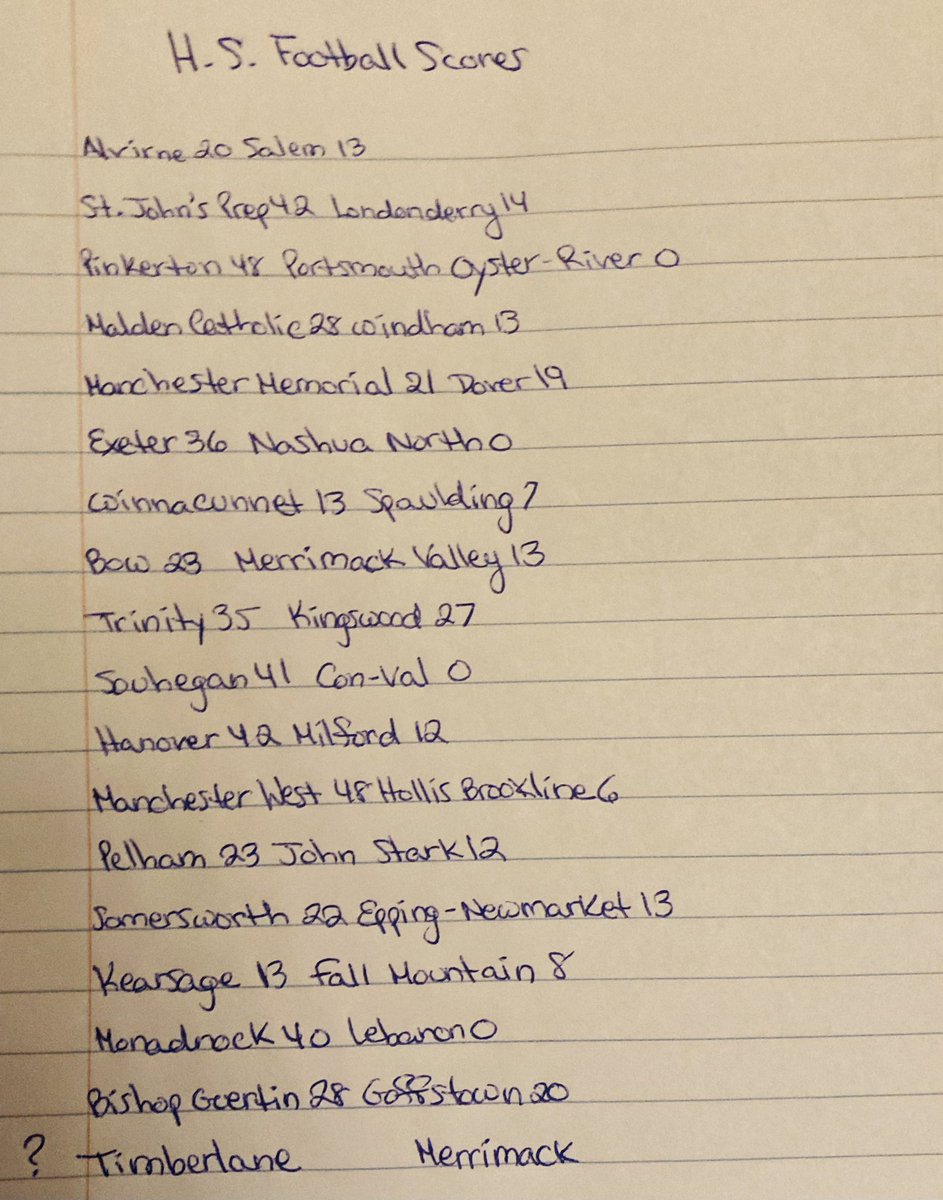 H.S. Football Scores
Alvirne 20 Salem 13
St. John's Prep 42 Londonderry 14
Pinkerton 48 Portsmouth Oyster-River 0
Malden Catholic 28 Windham 13
Manchester Memorial 21 Dover 19
Exeter 36 Nashua North 0
Winnacunnet 13 Spaulding 7
Bow 23 Merrimack Valley 13
Trinity 35 Kingswood 27
Souhegan 41 Con-Val 0
Hanover 42 Milford 12
Manchester West 48 Hollis Brookline 6
Pelham 23 John Stark 12
Somersworth 22 Epping-Newmarket 13
Kearsage 13 Fall Mountain 8
Monadnock 40 Lebanon 0
Bishop Guertin 28 Goffstown 20
? Timberlane Merrimack